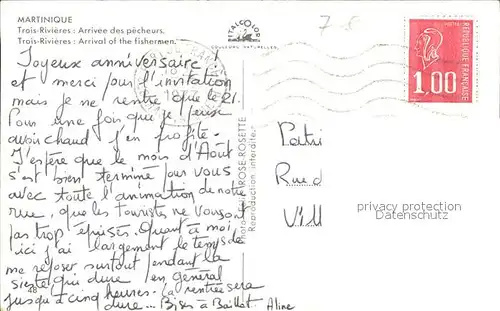 MARTINIQUE
Trois-Rivières : Arrivée des pêcheurs.
Trois-Rivières : Arrival of the fishermen.
ITALCOLOR
COULEURS NATURELLES
7-8
1,00
REPUBLIQUE FRANÇAISE
Joyeux anniversaire !
et merci pour l'invitation
mais je ne rentre que le 21.
Pour une fois que je peux
avoir chaud j'en profite -
J'espère que le mois d'Août
s'est bien terminé pour vous
avec toute l'animation de notre
rue, que les touristes ne vous ont
pas trop épuisés. Quant à moi
ici j'ai largement le temps de
me reposer surtout pendant la
sieste qui dure en général
jusqu'à cinq heures - La rentrée sera
dure... Bises à Baillot Aline
48
ROSE-ROSETTE
Reproduction interdite
Patri
Rue d
Vill
privacy protection
Datenschutz